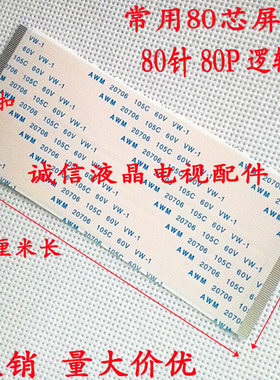 常用80芯屏
80针 80P 逻辑
扣
诚信液晶电视配件
厘米长
销 量大价优
AWM 20706 105C 60V VW-1
AWM 20706 105C 60V VW-1
AWM 20706 105C 60V VW-1
AWM 20706 105C 60V VW-1
AWM 20706 105C 60V VW-1
AWM 20706 105C 60V VW-1